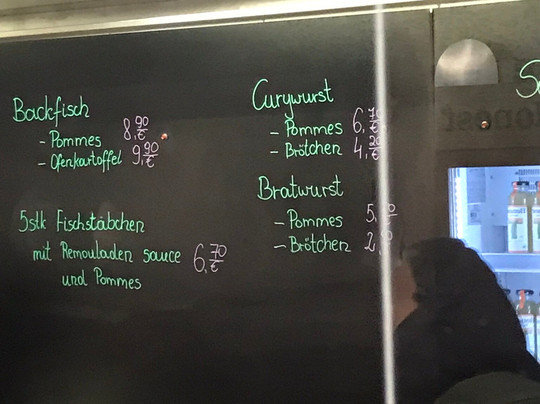 Backfisch
- Pommes 8,90 €
- Ofenkartoffel 9,90 €
5stk Fischstäbchen
mit Remouladen sauce 6,70 €
und Pommes
Currywurst
- Pommes 6,70 €
- Brötchen 4,20 €
Bratwurst
- Pommes
- Brötchen